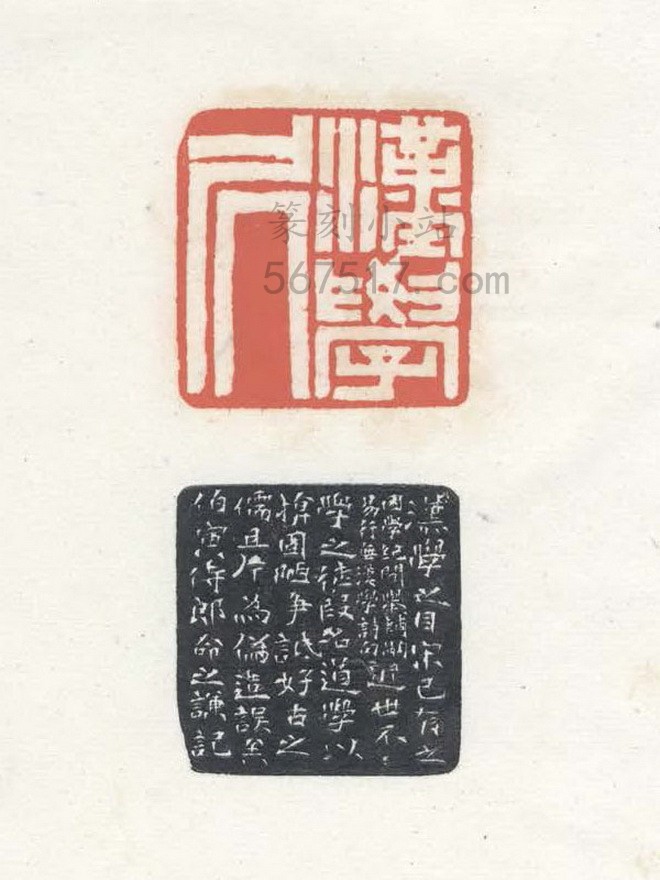 漢學
篆刻小站
567517.com
漢學之目宋已有之
困學紀聞舉
漢學詩句
近世不
學之徒叚名道學以
揜固陋爭詆好古之
儒且斥為偽造誤矣
伯寅侍郎命之謙記